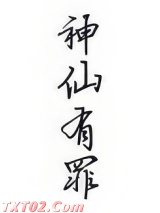 神仙有罪
TXT02.Com